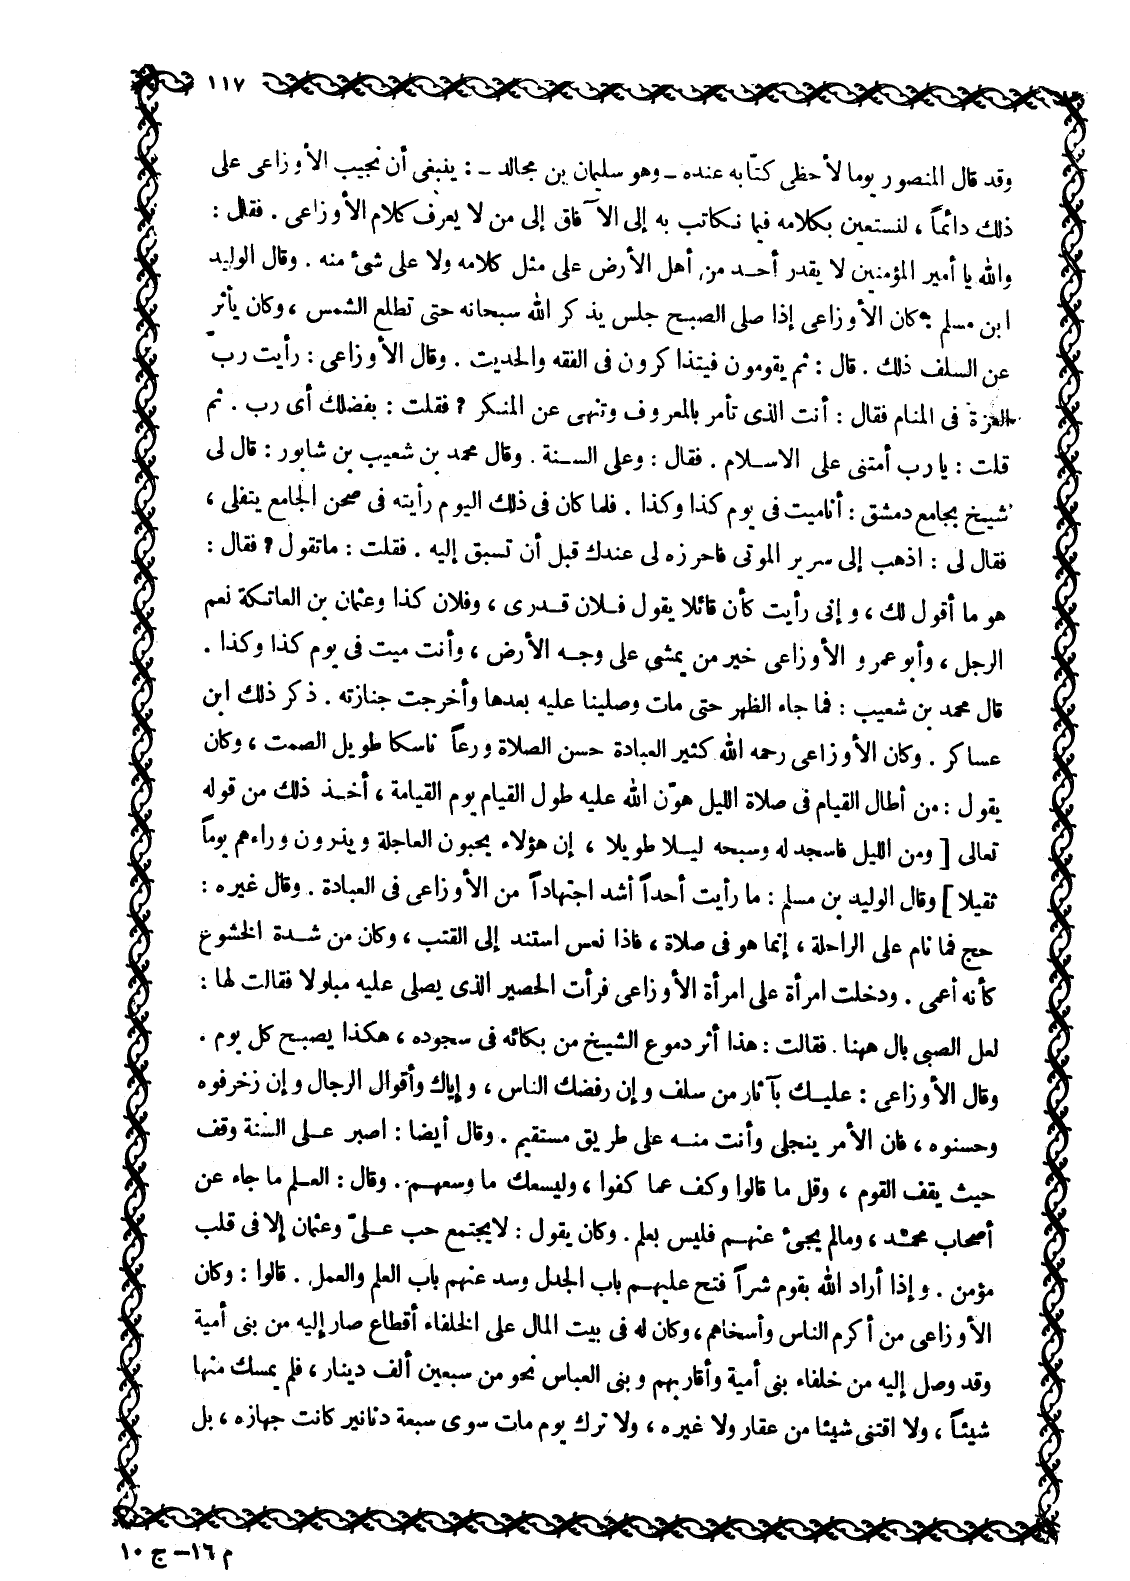 ١١٧
وقد قال المنصور يوما لأحظى كتّابه عنده ـ وهو سليمان بن مجالد ـ : ينبغى أن نجيب الأوزاعى على
ذلك دائماً ، لنستعين بكلامه فيما نكاتب به إلى الآفاق إلى من لا يعرف كلام الأوزاعى . فقال :
والله يا أمير المؤمنين لا يقدر أحد من أهل الأرض على مثل كلامه ولا على شئ منه . وقال الوليد
ابن مسلم : كان الأوزاعى إذا صلى الصبح جلس يذكر الله سبحانه حتى تطلع الشمس ، وكان يأثر
عن السلف ذلك . قال : ثم يقومون فيتذاكرون فى الفقه والحديث . وقال الأوزاعى : رأيت ربّ
العزة فى المنام فقال : أنت الذى تأمر بالمعروف وتنهى عن المنكر ؟ فقلت : بفضلك أى رب . ثم
قلت : يا رب أمتنى على الاسلام . فقال : وعلى السنة . وقال محمد بن شعيب بن شابور : قال لى
شيخ بجامع دمشق : أنا ميت فى يوم كذا وكذا . فلما كان فى ذلك اليوم رأيته فى صحن الجامع يتفلى ،
فقال لى : اذهب إلى سرير الموتى فاحرزه لى عندك قبل أن تسبق إليه . فقلت : ما تقول ؟ فقال :
هو ما أقول لك ، وإنى رأيت كأن قائلا يقول فلان قدرى ، وفلان كذا وعثمان بن العاتكة نعم
الرجل ، وأبو عمرو الأوزاعى خير من يمشى على وجه الأرض ، وأنت ميت فى يوم كذا وكذا .
قال محمد بن شعيب : فما جاء الظهر حتى مات وصلينا عليه بعدها وأخرجت جنازته . ذكر ذلك ابن
عساكر . وكان الأوزاعى رحمه الله كثير العبادة حسن الصلاة ورعاً ناسكا طويل الصمت ، وكان
يقول : من أطال القيام فى صلاة الليل هوّن الله عليه طول القيام يوم القيامة ، أخذ ذلك من قوله
تعالى [ ومن الليل فاسجد له وسبحه ليلا طويلا ، إن هؤلاء يحبون العاجلة ويذرون وراءهم يوماً
ثقيلا ] وقال الوليد بن مسلم : ما رأيت أحداً أشد اجتهاداً من الأوزاعى فى العبادة . وقال غيره :
حج فما نام على الراحلة ، إنما هو فى صلاة ، فاذا نعس استند إلى القتب ، وكان من شدة الخشوع
كأنه أعمى . ودخلت امرأة على امرأة الأوزاعى فرأت الحصير الذى يصلى عليه مبلولا فقالت لها :
لعل الصبى بال ههنا . فقالت : هذا أثر دموع الشيخ من بكائه فى سجوده ، هكذا يصبح كل يوم .
وقال الأوزاعى : عليك بآثار من سلف وإن رفضك الناس ، وإياك وأقوال الرجال وإن زخرفوه
وحسنوه ، فان الأمر ينجلى وأنت منه على طريق مستقيم . وقال أيضا : اصبر على السنة وقف
حيث يقف القوم ، وقل ما قالوا وكف عما كفوا ، وليسعك ما وسعهم . وقال : العلم ما جاء عن
أصحاب محمد ، ومالم يجئ عنهم فليس بعلم . وكان يقول : لايجتمع حب علىّ وعثمان إلا فى قلب
مؤمن . وإذا أراد الله بقوم شراً فتح عليهم باب الجدل وسد عنهم باب العلم والعمل . قالوا : وكان
الأوزاعى من أكرم الناس وأسخاهم ، وكان له فى بيت المال على الخلفاء أقطاع صار إليه من بنى أمية
وقد وصل إليه من خلفاء بنى أمية وأقاربهم وبنى العباس نحو من سبعين ألف دينار ، فلم يمسك منها
شيئاً ، ولا اقتنى شيئا من عقار ولا غيره ، ولا ترك يوم مات سوى سبعة دنانير كانت جهازه ، بل
م ١٦ – ج ١٠